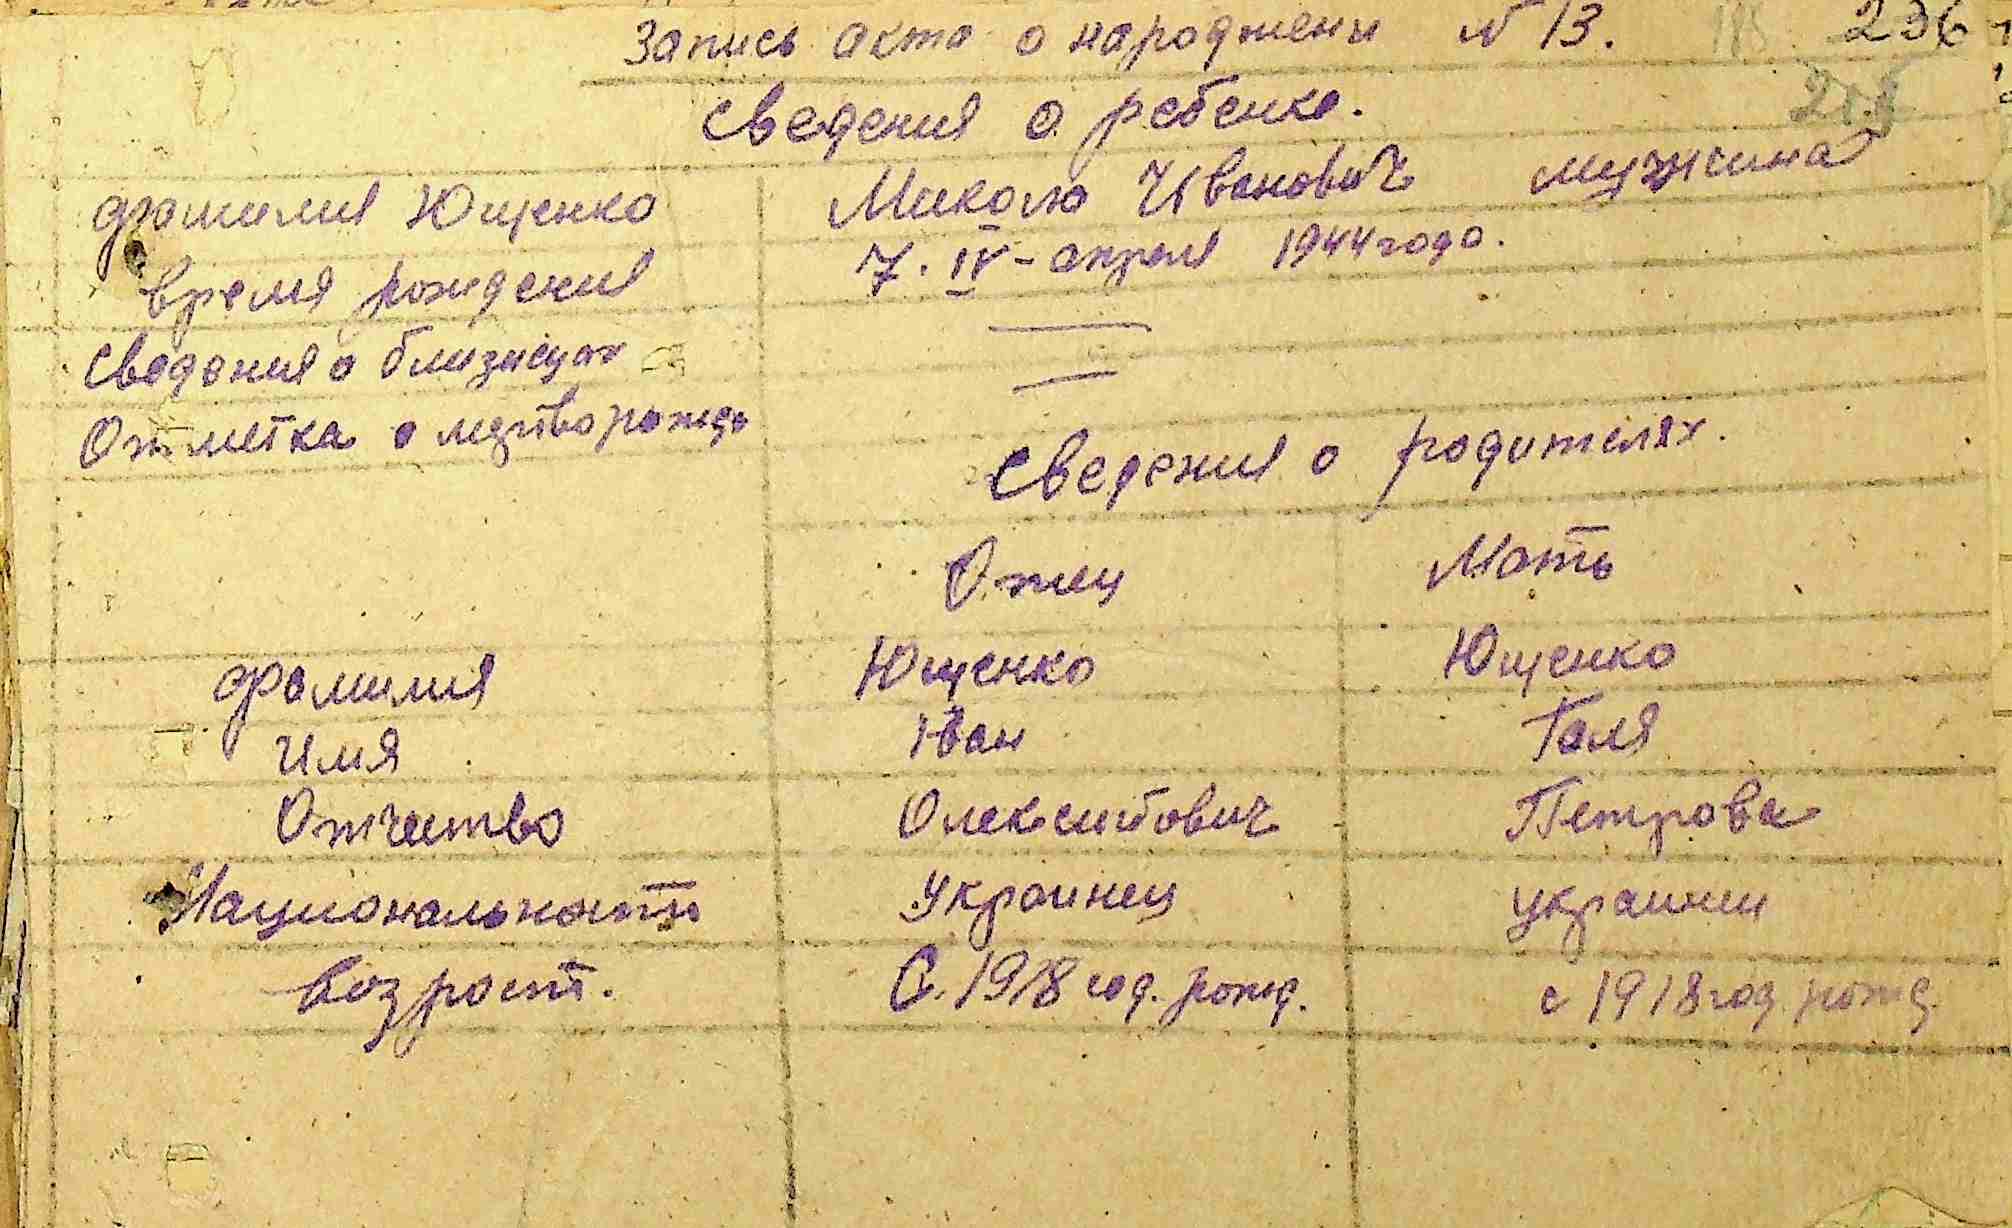 Запись акта о народжени N 13. 236
Сведения о ребенке.
фамилия Ющенко Микола Иванович мужчина
время рождения 7. IV - апреля 1944 года.
Сведения о близнецах
Отметка о мертворожд
Сведения о родителях.
Отец Мать
фамилия Ющенко Ющенко
Имя Іван Галя
Отчество Олексийович Петрова
Национальность Украинец украинец
возраст. С. 1918 год. рожд. с 1918 год. рожд.